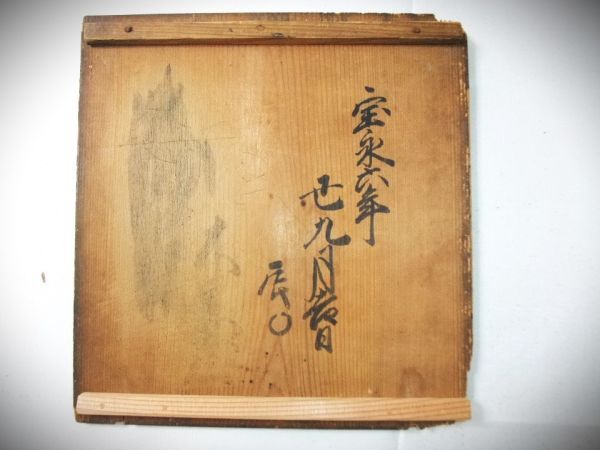 宝永六年
丑九月吉日
辰〇